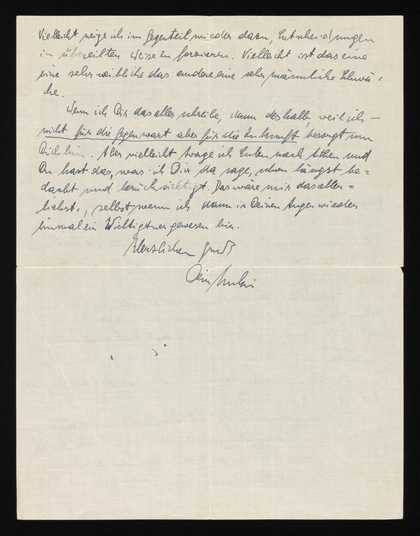 Vielleicht neige ich im Gegenteil wieder dazu, Entscheidungen
in übereilten Weise zu forcieren. Vielleicht ist das eine
eine sehr weibliche das andere eine sehr männliche Schwä-
che.
Wenn ich Dir das alles schreibe, dann deshalb weil ich –
nicht für die Gegenwart aber für die Zukunft besorgt um
Dich bin. Aber vielleicht trage ich Eulen nach Athen und
Du hast das, was ich Dir da sage, schon längst be=
dacht und berücksichtigt. Das wäre mir das aller=
liebste, selbst wenn ich dann in Deinen Augen wieder
einmal ein Wichtigtuer gewesen bin.
Herzlichen Gruß
Dein